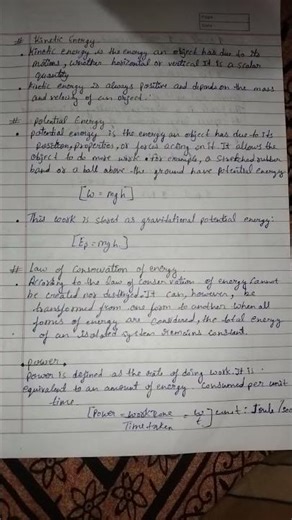 # Kinetic Energy
• Kinetic energy is the energy an object has due to its
motion, whether horizontal or vertical. It is a scalar
quantity
• Kinetic energy is always positive and depends on the mass
and velocity of an object.
# Potential Energy
• Potential energy is the energy an object has due to its
position, properties, or forces acting on it. It allows the
object to do more work. For example, a stretched rubber
band or a ball above the ground have potential energy
[W = mgh]
• This work is stored as gravitational potential energy:
[Ep = mgh.]
# Law of Conservation of energy
• According to the law of conservation of energy cannot
be created nor destroyed. It can, however, be
transformed from one form to another when all
forms of energy are considered, the total energy
of an isolated system remains constant.
• Power.
Power is defined as the rate of doing work. It is
equivalent to an amount of energy consumed per unit
time
[Power = Work Done = W ] unit: Joule/
Time taken t